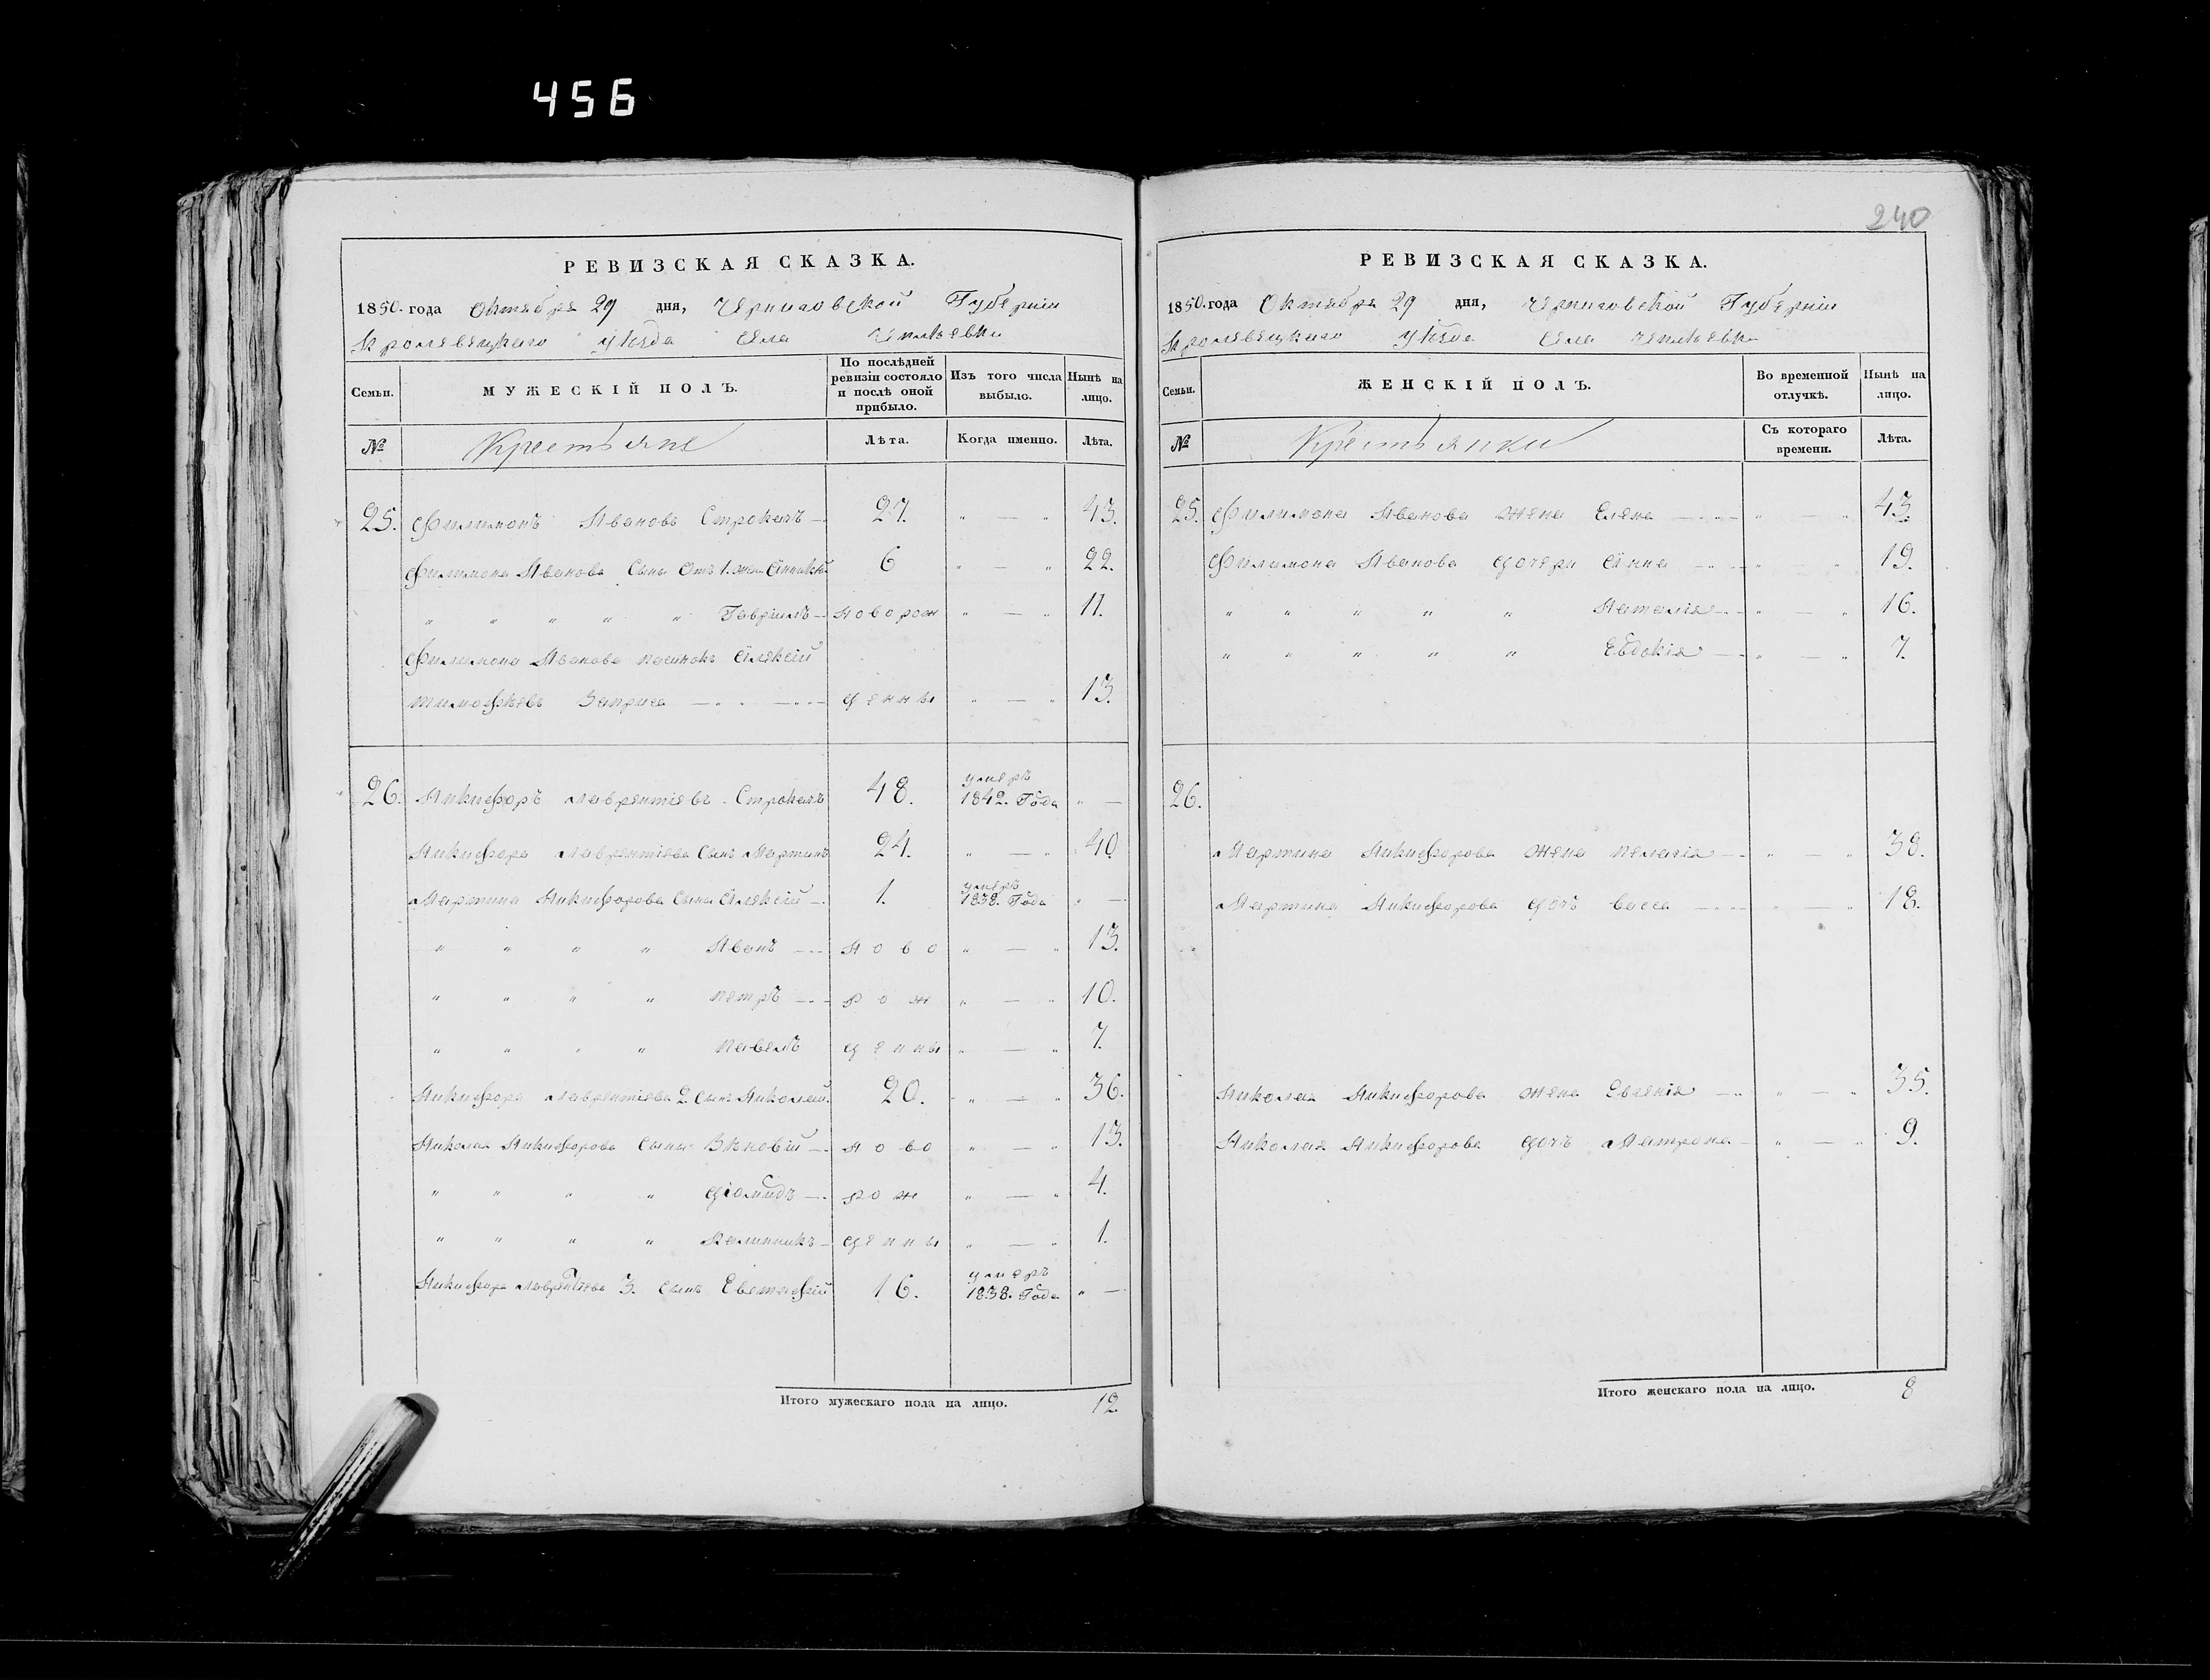 456
240
РЕВИЗСКАЯ СКАЗКА.
1850. года Октября 29 дня, Черниговской Губерніи
Кролевецкаго уѣзда Села
Семьи. МУЖЕСКІЙ ПОЛЪ. По послѣдней ревизіи состояло и послѣ оной прибыло. Изъ того числа выбыло. Нынѣ на лицо.
№ Крестьяне Лѣта. Когда именно. Лѣта.
25. Филимонъ Ивановъ Строкачъ 27. " — " 43.
Филимона Иванова Сыны Отъ 1. жены 6 " — " 22.
" " " " " Гавріилъ новорож " — " 11.
Филимона Иванова пасынокъ Алексій
тимофѣевъ денны " — " 13.
26. Никифоръ лаврентіевъ Строкачъ 48. умеръ 1842. Года " —
Никифора лаврентіева Сынъ Мартинъ 24. " — " 40
Мартина Никифорова Сыны Алексій 1. умеръ 1838. Года " —
" " " " Иванъ ново " — " 13.
" " " " петръ рож " — " 10.
" " " " павелъ денны " — " 7.
Никифора лаврентіева 2. Сынъ Николай. 20. " — " 36.
Николая Никифорова Сыны ново " — " 13.
" " " " діомидъ рож " — " 4.
" " " " Калинникъ денны " — " 1.
Никифора лаврентіева 3. сынъ Евстафій 16. умеръ 1838. Года " —
Итого мужескаго пола на лицо. 12
РЕВИЗСКАЯ СКАЗКА.
1850. года Октября 29 дня, Черниговской Губерніи
Кролевецкаго Уѣзда Села
Семьи. ЖЕНСКІЙ ПОЛЪ. Во временной отлучкѣ. Нынѣ на лицо.
№ Крестьянки Съ котораго времени. Лѣта.
25. Филимона Иванова жена Елена " — " 43.
Филимона Иванова дочери Анна " — " 19.
" " " " " Наталія " — " 16.
" " " " " Евдокія " — " 7.
26.
Мартина Никифорова жена пелагія " — " 38.
Мартина Никифорова дочь васса " — " 18.
Николая Никифорова жена Евгенія " — " 35.
Николая Никифорова дочь Матрона " — " 9.
Итого женскаго пола на лицо. 8